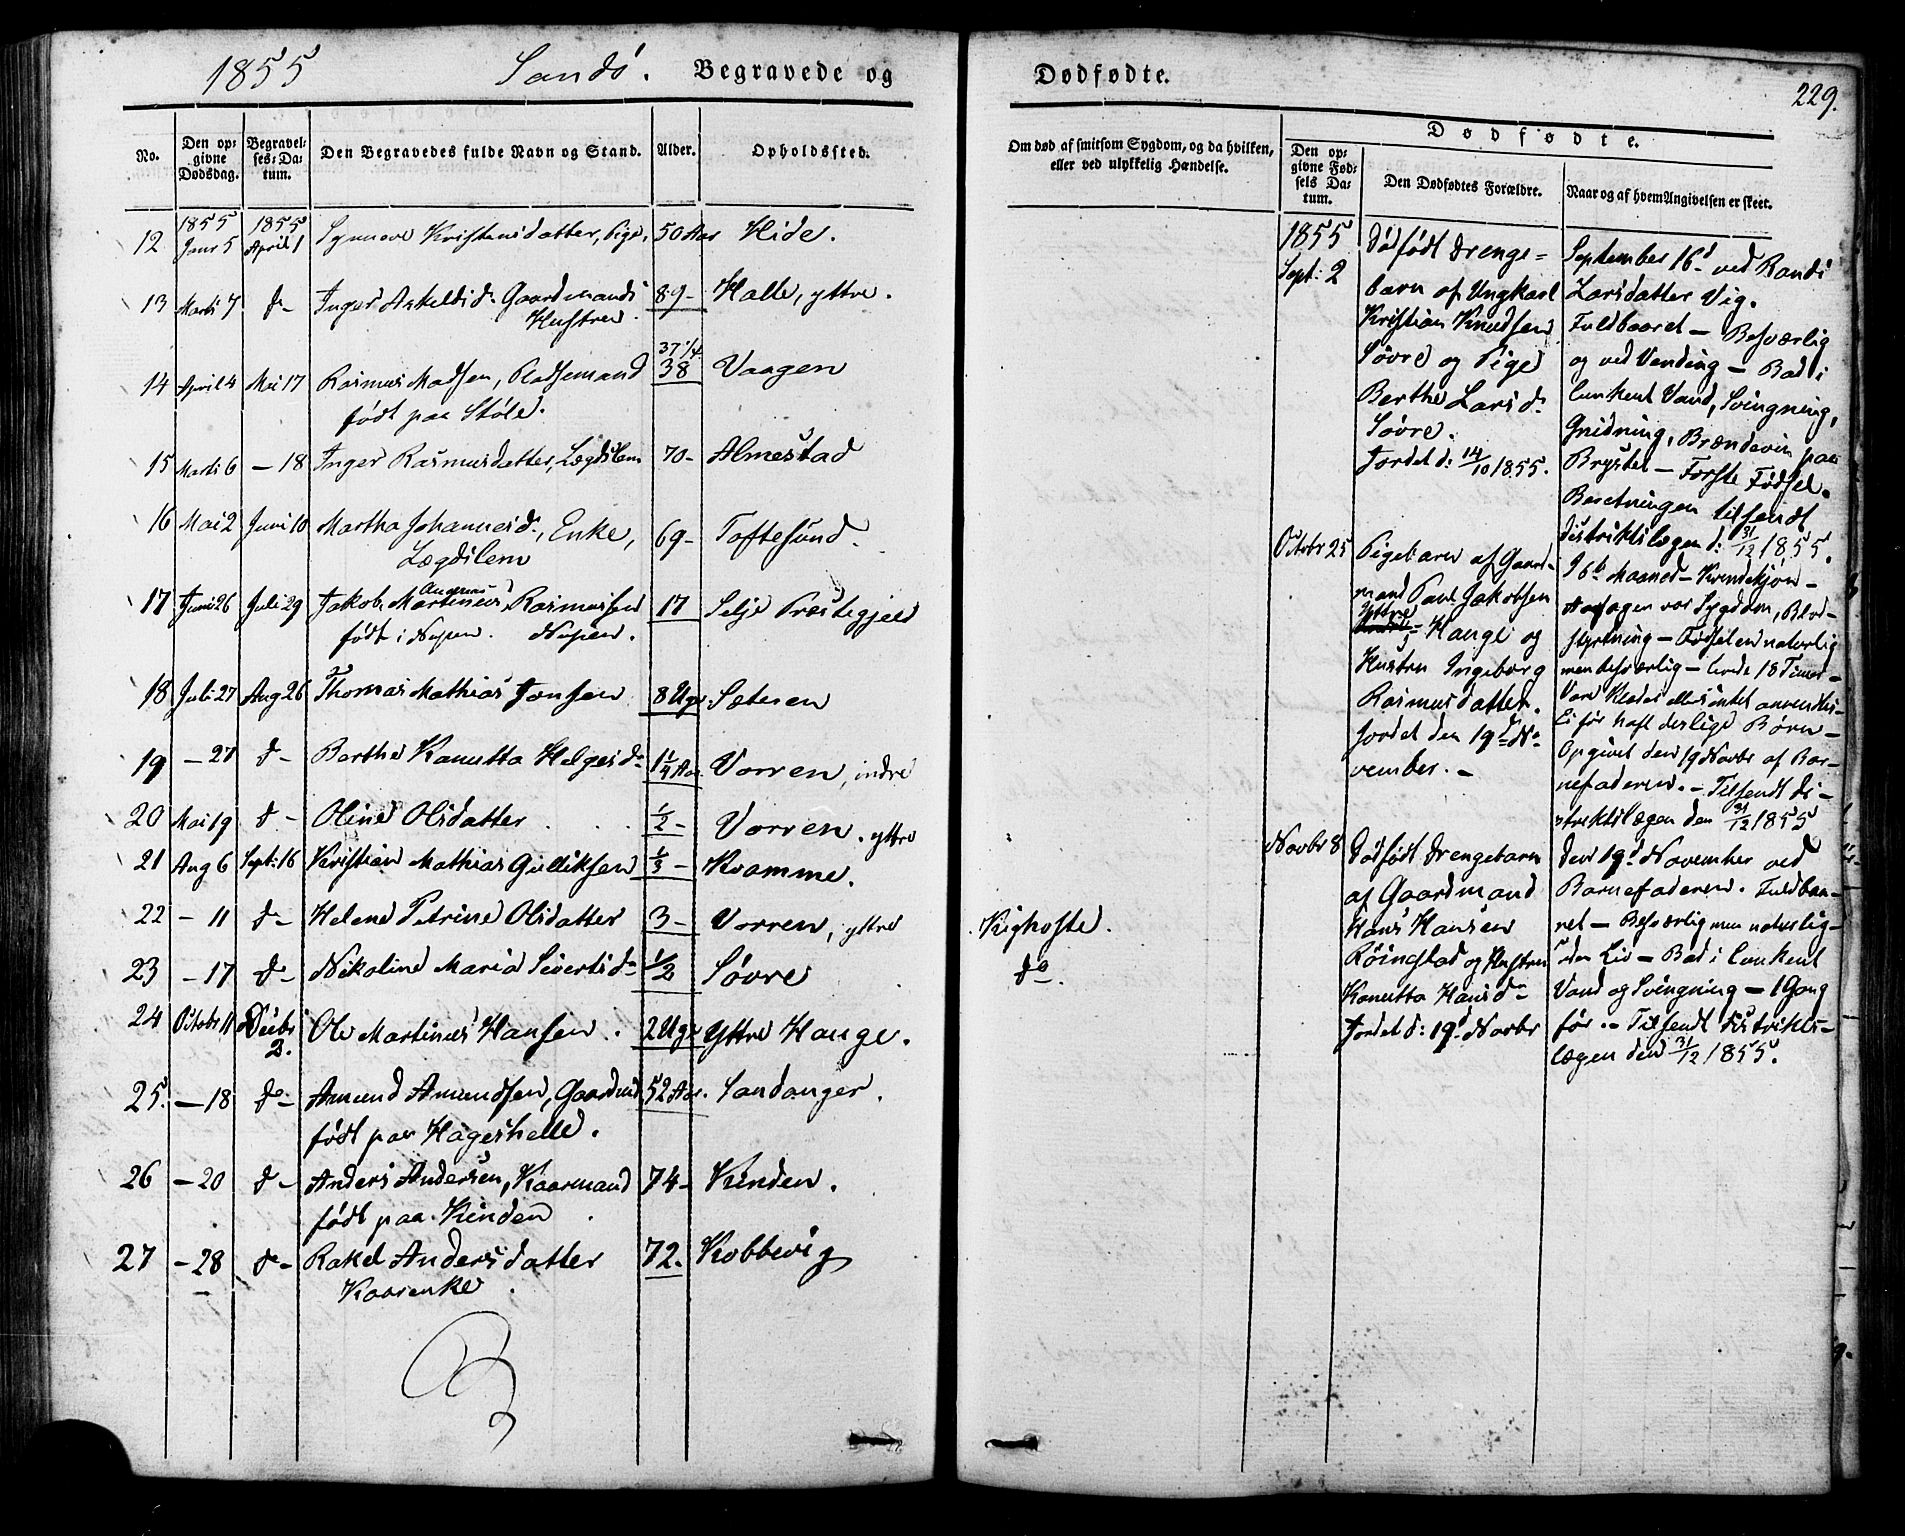 1855 Sandö. Begravede og
No.
Den op-
givne
Dødsdag.
Begravel-
ses-Da-
tum.
Den Begravedes fulde Navn og Stand.
Alder.
Opholdssted.
12 1855 Janr 5 1855 April 1 Synneve Kristensdatter, Pige, 50 Aar Hide.
13 Marts 7 d- Inger Askeldsd. Gaardmands 89- Halle, yttre.
Hustru.
14 April 4 Mai 17 Rasmus Madsen, Pladsemand 37 1/4 38 Vaagen
født paa Støle.
15 Marts 6 - 18 Inger Rasmusdatter, Lægdslem 70- Almestad
16 Mai 2 Juni 10 Martha Johannesd., Enke, 69- Toftesund.
Lægdslem
17 Juni 26 Juli 29 Jakob Martinus Rasmussen 17 Selje Præstegjeld
født i Nupen. Nupen.
18 Juli 27 Aug 26 Thomas Mathias Jonsen 8 Uger Sæteren
19 - 27 d- Berthe Kanutta Helgesd. 1 1/4 Aar Vorren, indre
20 Mai 19 d- Oline Olsdatter 1/2 - Vorren, yttre
21 Aug 6 Sept: 16 Kristian Mathias Gulliksen 1/3 - Kvamme.
22 - 11 d- Helene Petrine Olsdatter 3- Vorren, yttre
23 - 17 d- Nikoline Maria Sivertsd. 1/2 Søvre
24 Octobr 11 Decbr 2. Ole Martinus Hansen. 2 Uger Yttre Hauge.
25. - 18 d- Amund Amundsen, Gaardmd 52 Aar. Sandanger.
født paa Hageshelle.
26 - 20 d- Anders Andersen, Kaarmand 74- Kinden.
født paa Kinden
27 - 28 d- Rakel Andersdatter 72. Kobbevig
Kaarenke.
Dødfødte. 229.
Om død af smitsom Sygdom, og da hvilken,
eller ved ulykkelig Hændelse.
Dødfødte.
Den op-
givne Fød-
sels Da-
tum.
Den Dødfødtes Forældre.
Naar og af hvem Angivelsen er skeet.
Kighoste.
do.
1855
Sept: 2
Dødfødt Drenge-
barn af Ungkarl
Kristian Knudsen
Søvre og Pige
Berthe Larsd.
Søvre.
Jordet d: 14/10 1855.
September 16d ved Randi
Larsdatter Vig.
Fuldbaaret - Besværlig
og ved Vending - Bad i
lunkent Vand, Svingning,
Gnidning, Brændeviin paa
Brystet - Første Fødsel.
Beretningen tilsendt
Distriktslægen d: 31/12 1855.
Octobr 25
Pigebarn af Gaard-
mand Paul Jakobsen
Yttre Hauge og
Hustru Ingeborg
Rasmusdatter.
Jordet den 19d No-
vember. -
I 6te Maaned - Kvindekjøn -
Aarsagen var Sygdom, Blod-
styrtning - Fødselen naturlig
men besværlig - levde 18 Timer -
Ei før haft deslige Børn -
Opgivet den 19 Novbr af Bar-
nefaderen. - Tilsendt Di-
striktslægen den 31/12 1855
Novbr 8
Dødfødt Drengebarn
af Gaardmand
Hans Hansen
Röinstad og Hustru
Kanutta Hansd.
Jordet d: 19d Novbr
Den 19d November ved
Barnefaderen. Fuldbaa-
ret - Besværlig men naturlig -
uden Liv - Bad i lunkent
Vand og Svingning - 1 Gang
før. - Tilsendt Distrikts-
lægen den 31/12 1855.